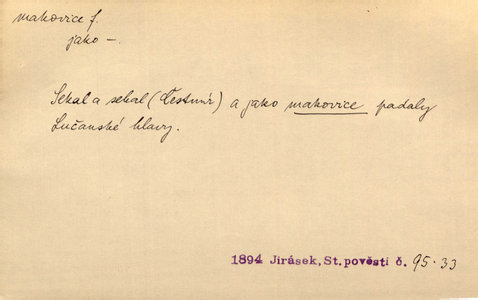 makovice f.
jako –.
Sekal a sekal (Čestmír) a jako makovice padaly
Lučanské hlavy.
1894 Jirásek, St. pověsti č. 95·33